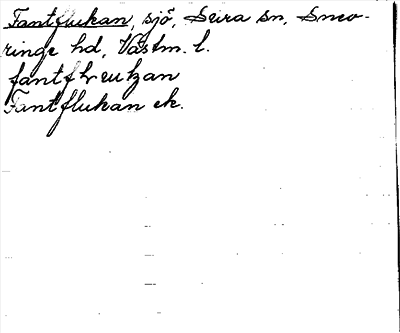 Fantflukan, sjö, Svira sn, Snev-
ringe hd, Västm. l.
fantflrukan
Fantflukan ek.